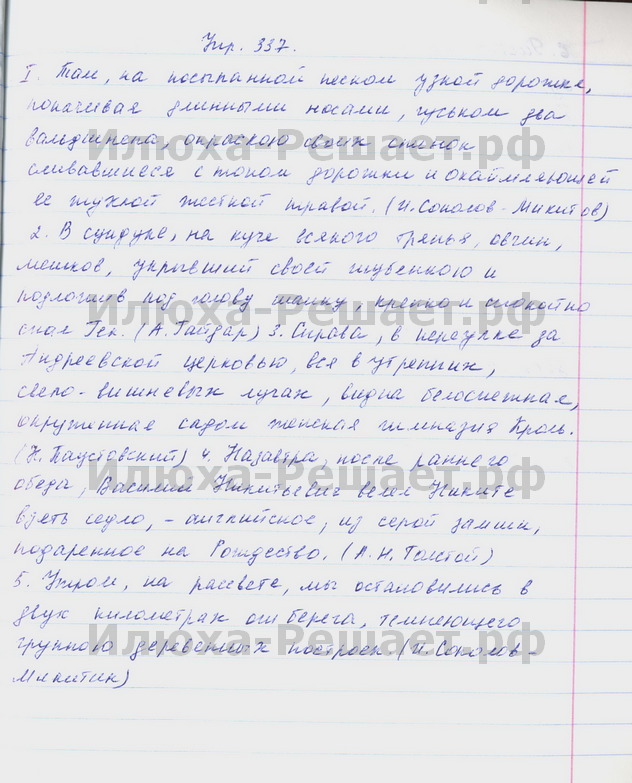 Упр. 337.
I. Там, на посыпанной песком узкой дорожке,
покачивая длинными носами, гуськом два
вальдшнепа, окраскою своих спинок
сливавшиеся с тоном дорожки и окаймляющей
ее жухлой жесткой травой. (И. Соколов-Микитов)
2. В сундуке, на куче всякого тряпья, овчин,
мешков, укрывший своей шубенкою и
подложив под голову шапку, крепко и спокойно
спал Гек. (А. Гайдар) 3. Справа, в переулке за
Андреевской церковью, вся в утренних,
светло-вишневых лучах, видна белоснежная,
окруженная садом женская гимназия Кроль.
(К. Паустовский) 4. Назавтра, после раннего
обеда, Василий Никитьевич велел Никите
взять седло, - английское, из серой замши,
подаренное на Рождество. (А. Н. Толстой)
5. Утром, на рассвете, мы остановились в
двух километрах от берега, темнеющего
группою деревенных построек. (И. Соколов-
Микитин)
Илюха-Решает.рф
Илюха-Решает.рф
Илюха-Решает.рф
Илюха-Решает.рф
Илюха-Решает.рф